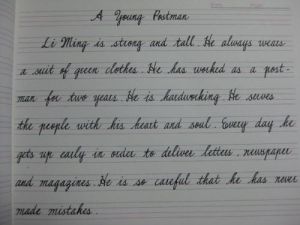 A Young Postman
Li Ming is strong and tall. He always wears
a suit of green clothes. He has worked as a post-
man for two years. He is hardworking. He serves
the people with his heart and soul. Every day he
gets up early in order to deliver letters, newspaper
and magazines. He is so careful that he has never
made mistakes.